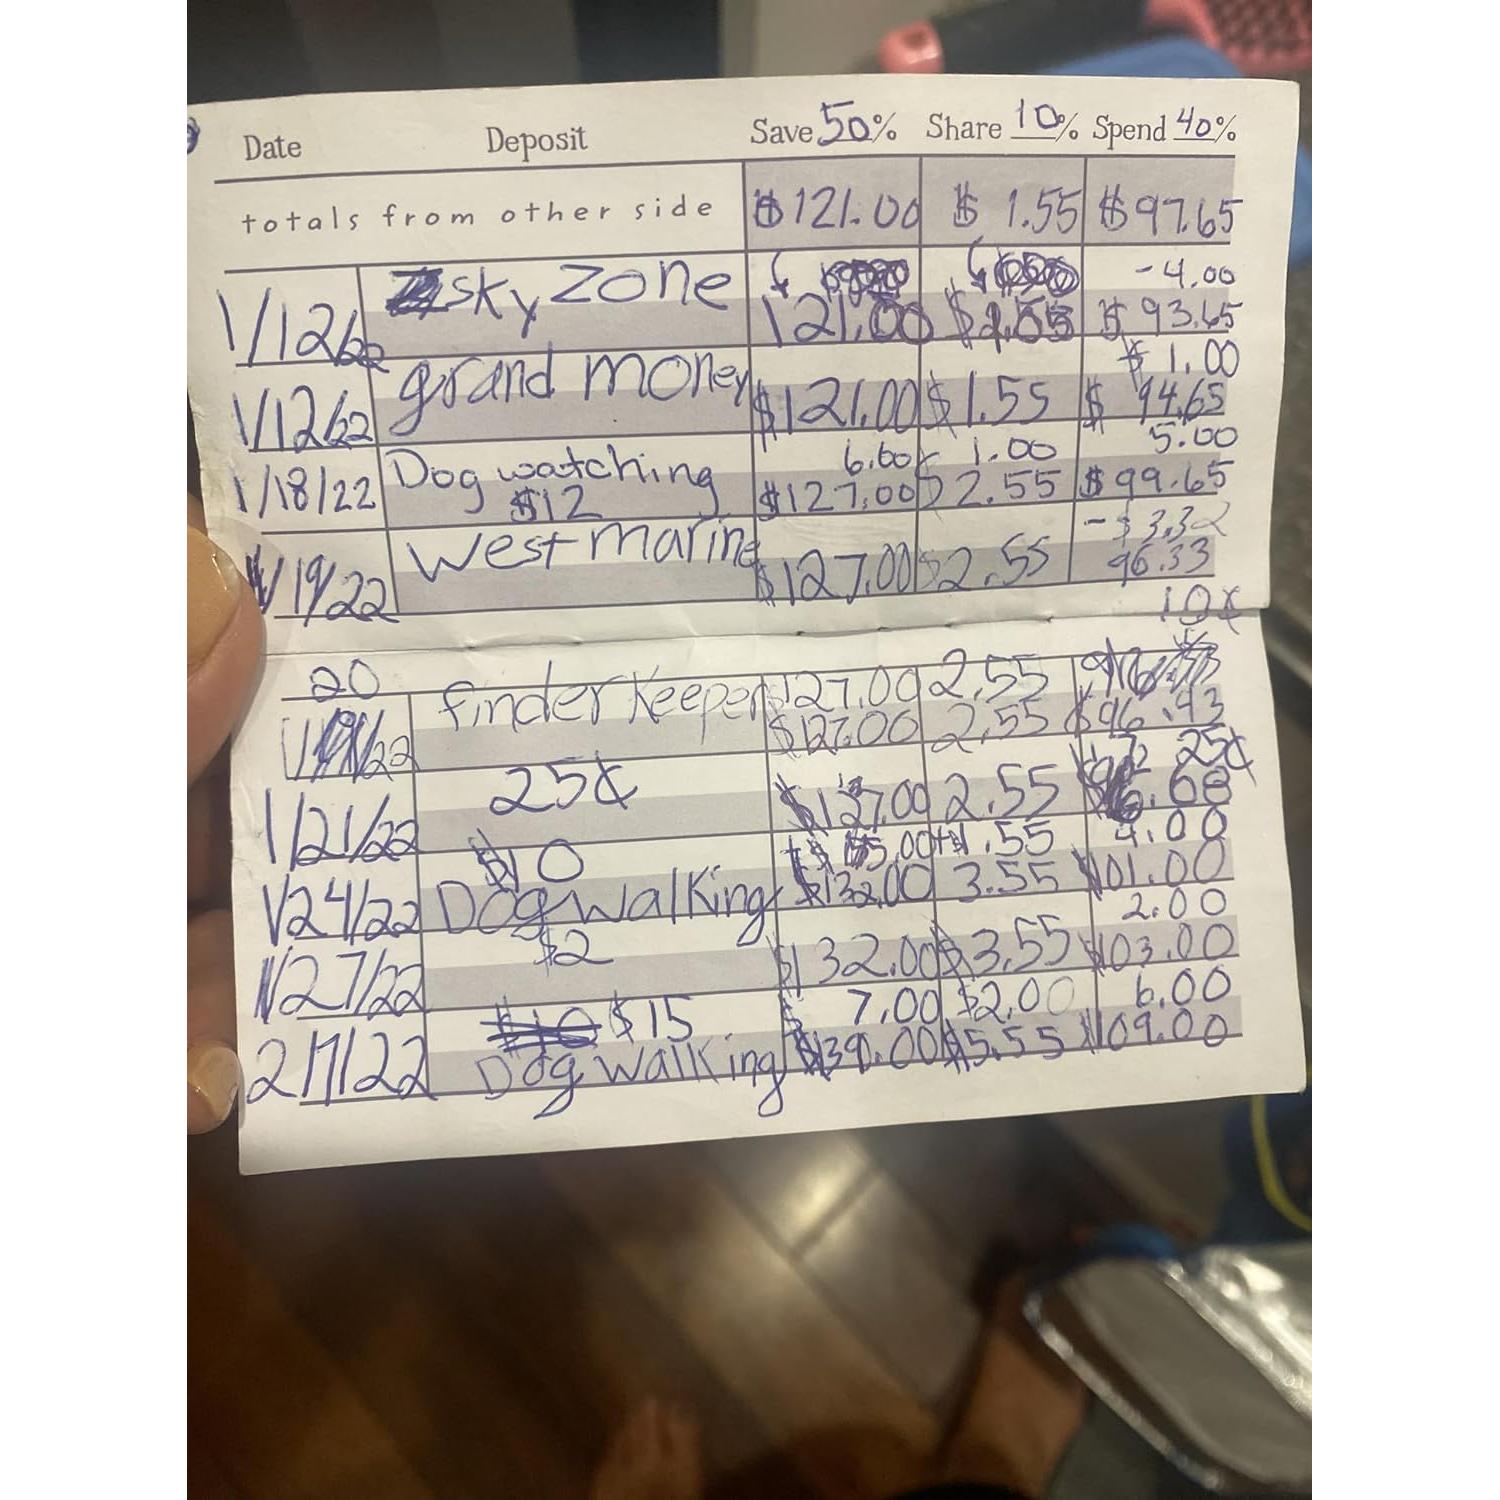 Date Deposit Save 50% Share 10% Spend 40%
totals from other side $121.00 $ 1.55 $97.65
-4.00
1/12/22 sky zone 121.00 $ 93.65
$ 1.00
1/12/22 grand money $121.00 $1.55 $ 94.65
6.00 1.00 5.00
1/18/22 Dog watching $127.00 2.55 $99.65
$12
-$3.32
1/19/22 West marine $127.00 $2.55 96.33
10¢
20 finder keeper $127.00 2.55
1/ /22 $127.00 2.55 $96.43
25¢
1/21/22 25¢ $127.00 2.55 .68
$10 5.00 +1.55 4.00
1/24/22 Dog walking $132.00 3.55 $101.00
$2 2.00
1/27/22 $132.00 $3.55 $103.00
$10 $15 $ 7.00 $2.00 6.00
2/7/22 Dog walking $139.00 $5.55 $109.00